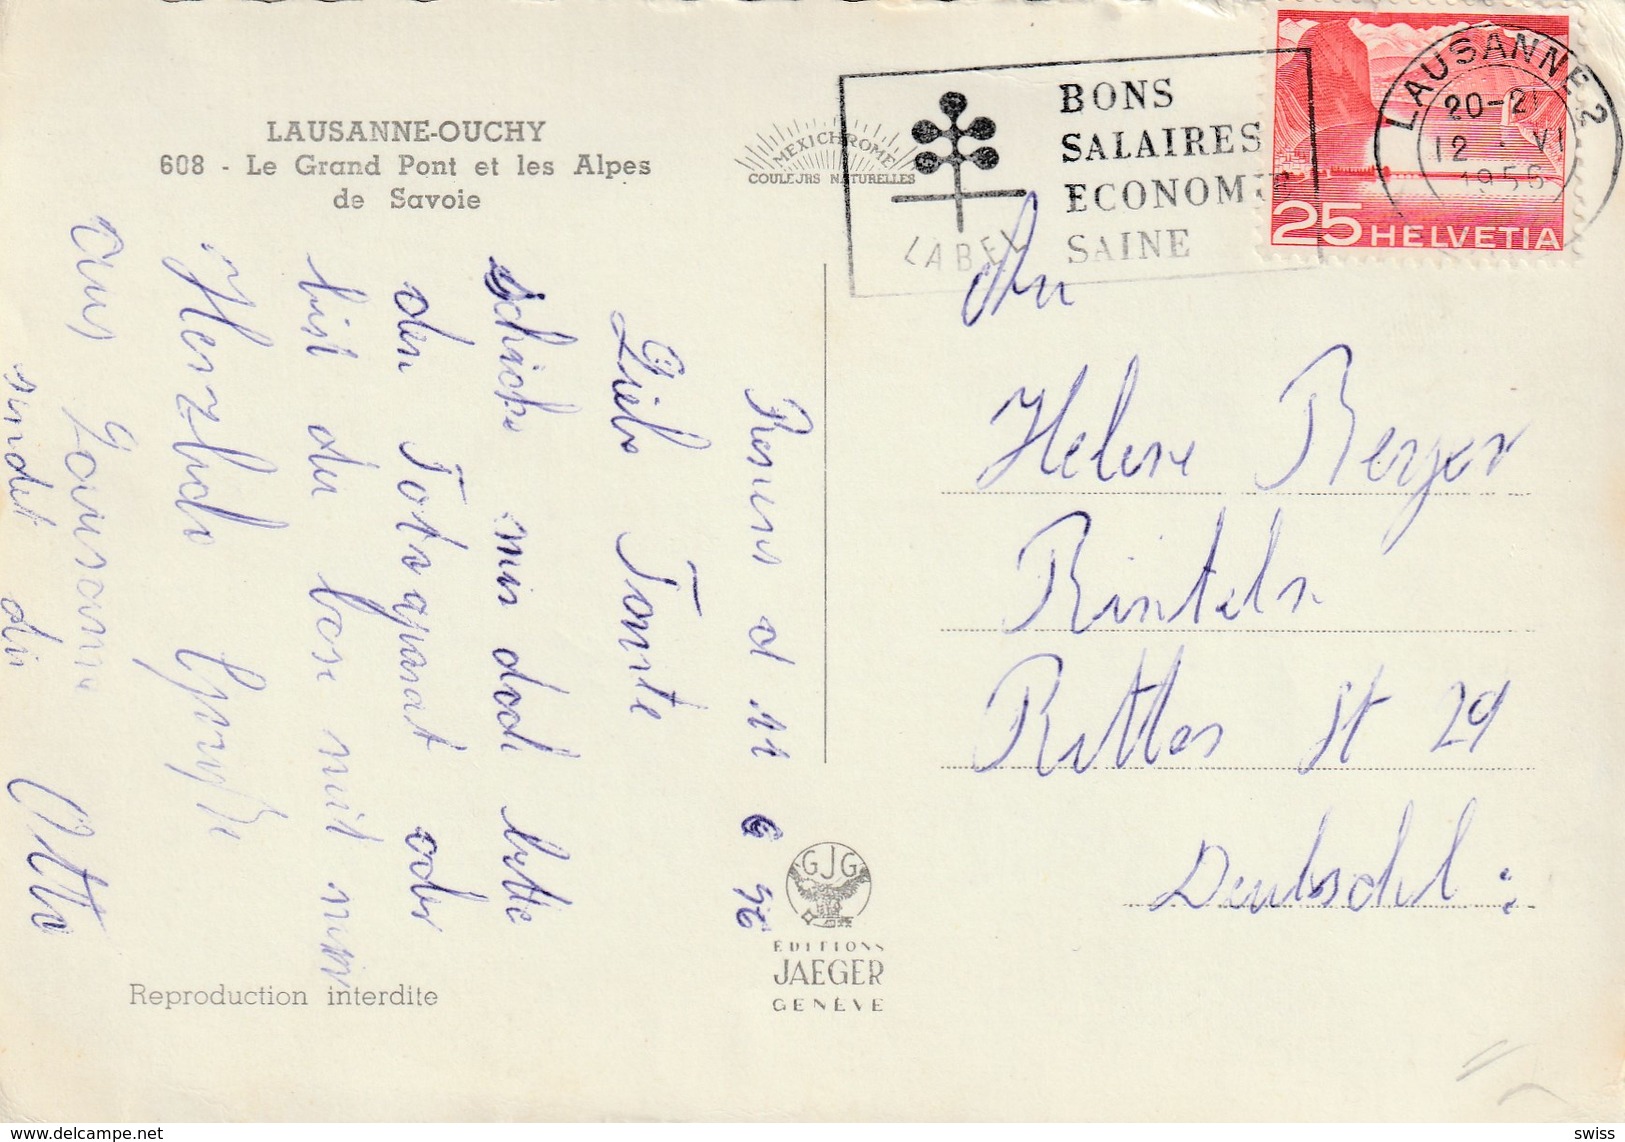 LAUSANNE-OUCHY
608 - Le Grand Pont et les Alpes
de Savoie
MEXICHROME
COULEURS NATURELLES
BONS
SALAIRES
ECONOMIE
SAINE
LABEL
LAUSANNE 2
20-21
12 · VI
1956
25 HELVETIA
Renens d 11 6 56
Liebe Tante
schicke mir doch bitte
den Fotoapparat oder
bist du böse mit mir
Herzliche Grüsse
aus Lausanne
sendet dir Otto
An
Helene Berger
Rinteln
Ritter St 29
Deutschl :
GJG
EDITIONS
JAEGER
GENÈVE
Reproduction interdite
swiss
www.delcampe.net